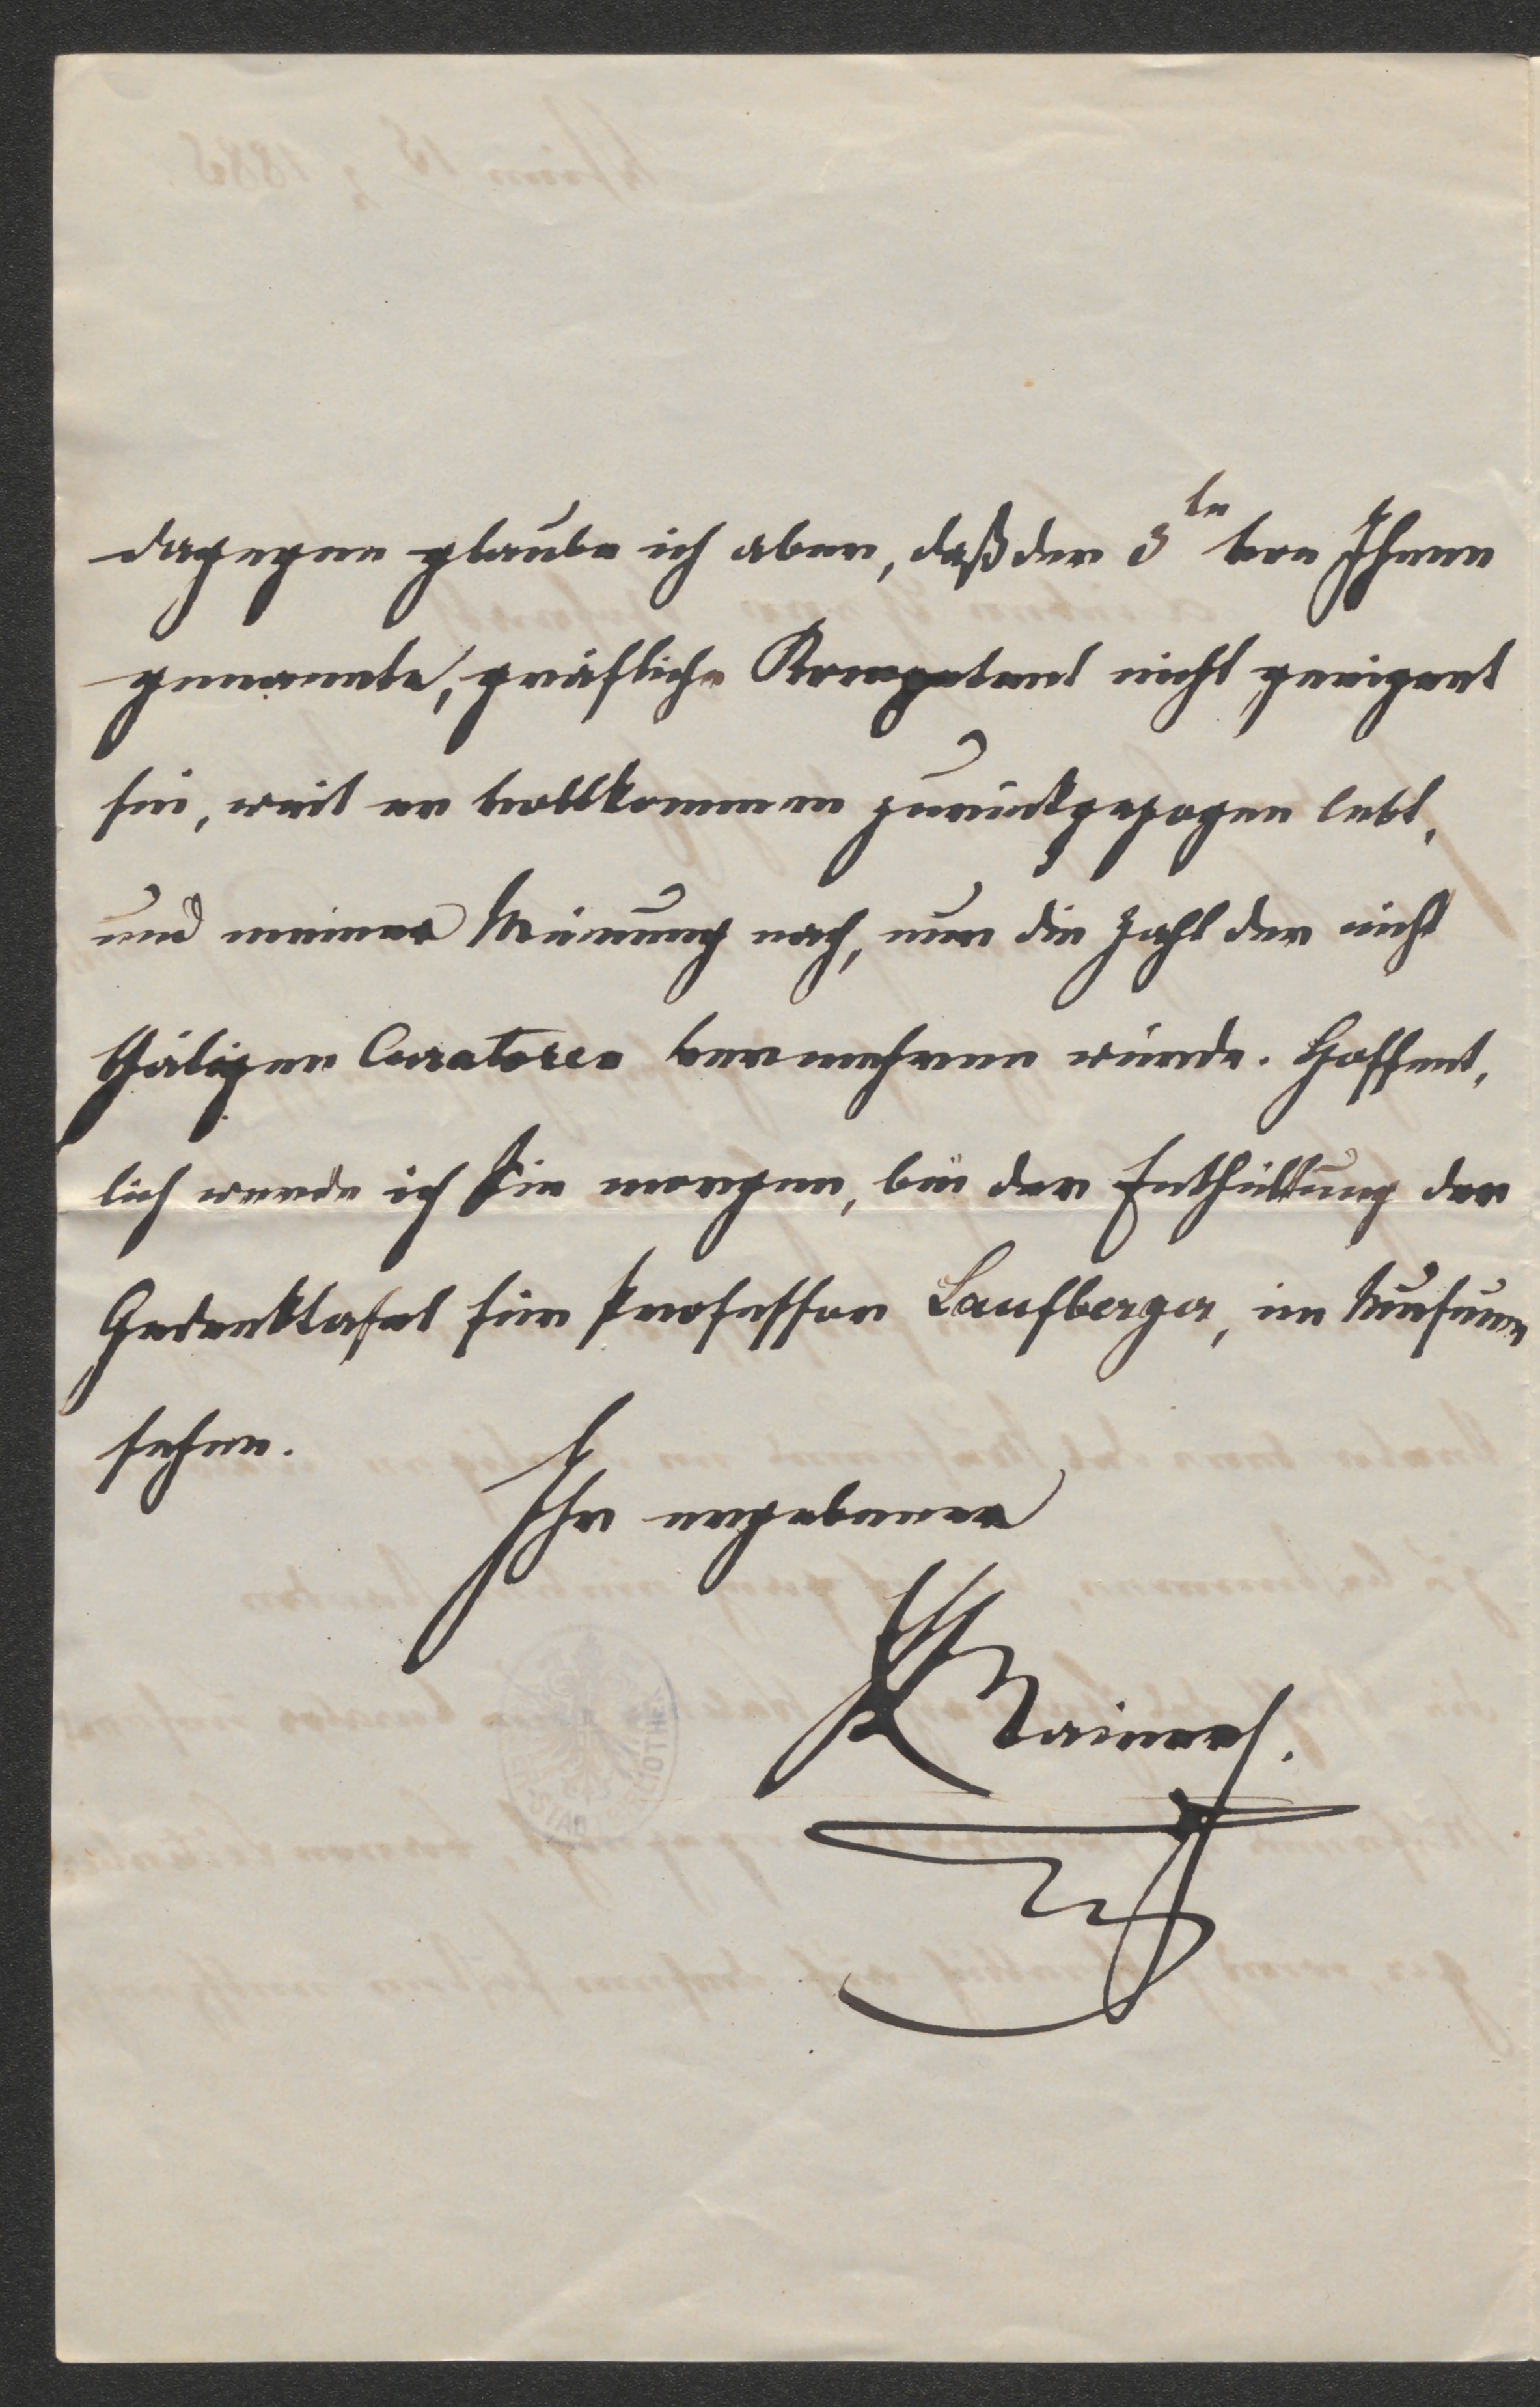 dagegen glaube ich aber, daß der 3te von Ihnen
genannte, gräfliche Kompetent nicht geeignet
sei, weil er vollkommen zurückgezogen lebt,
und meiner Meinung nach, nur die Zahl der nicht
thätigen Curatoren vermehren würde. Hoffent,
lich werde ich Sie morgen, bei der Enthüllung der
Gedenktafel für Professor Laufberger, im Museum
sehen.
Ihr ergebener
Rainer.